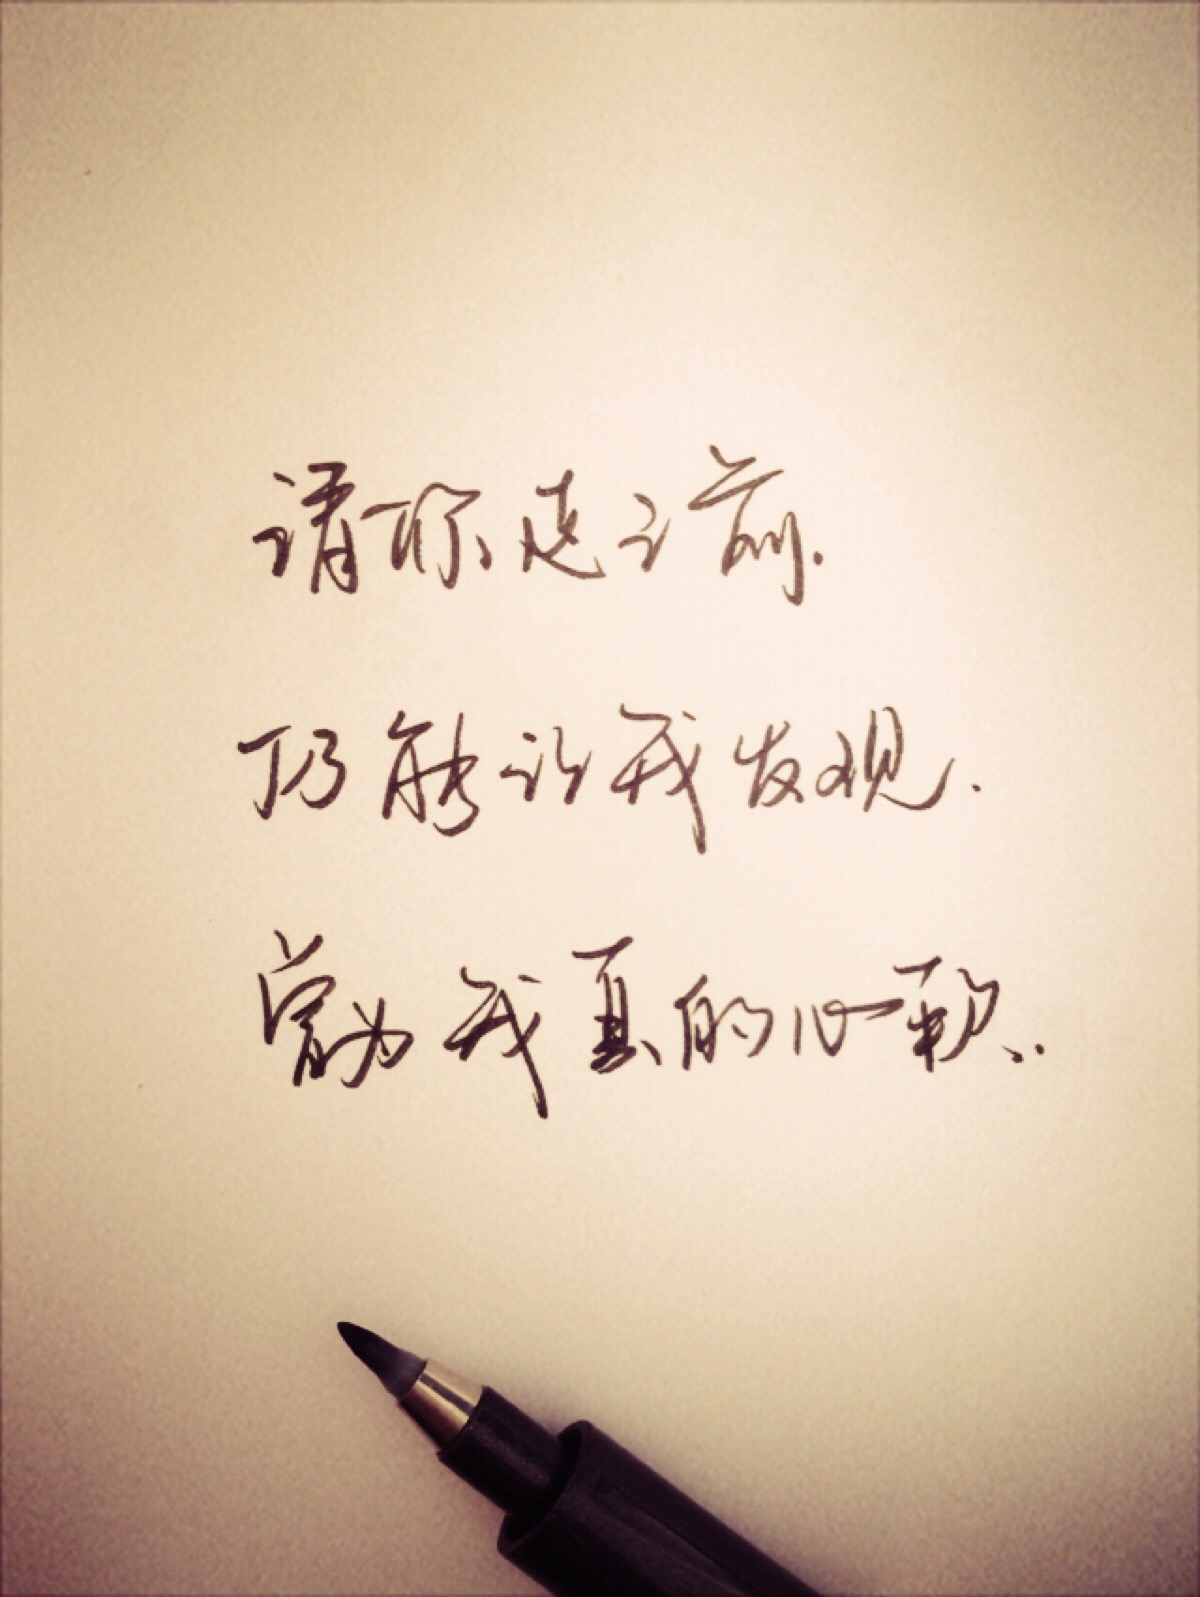 请你走之前.
仍能让我发现.
曾为我真的心软..